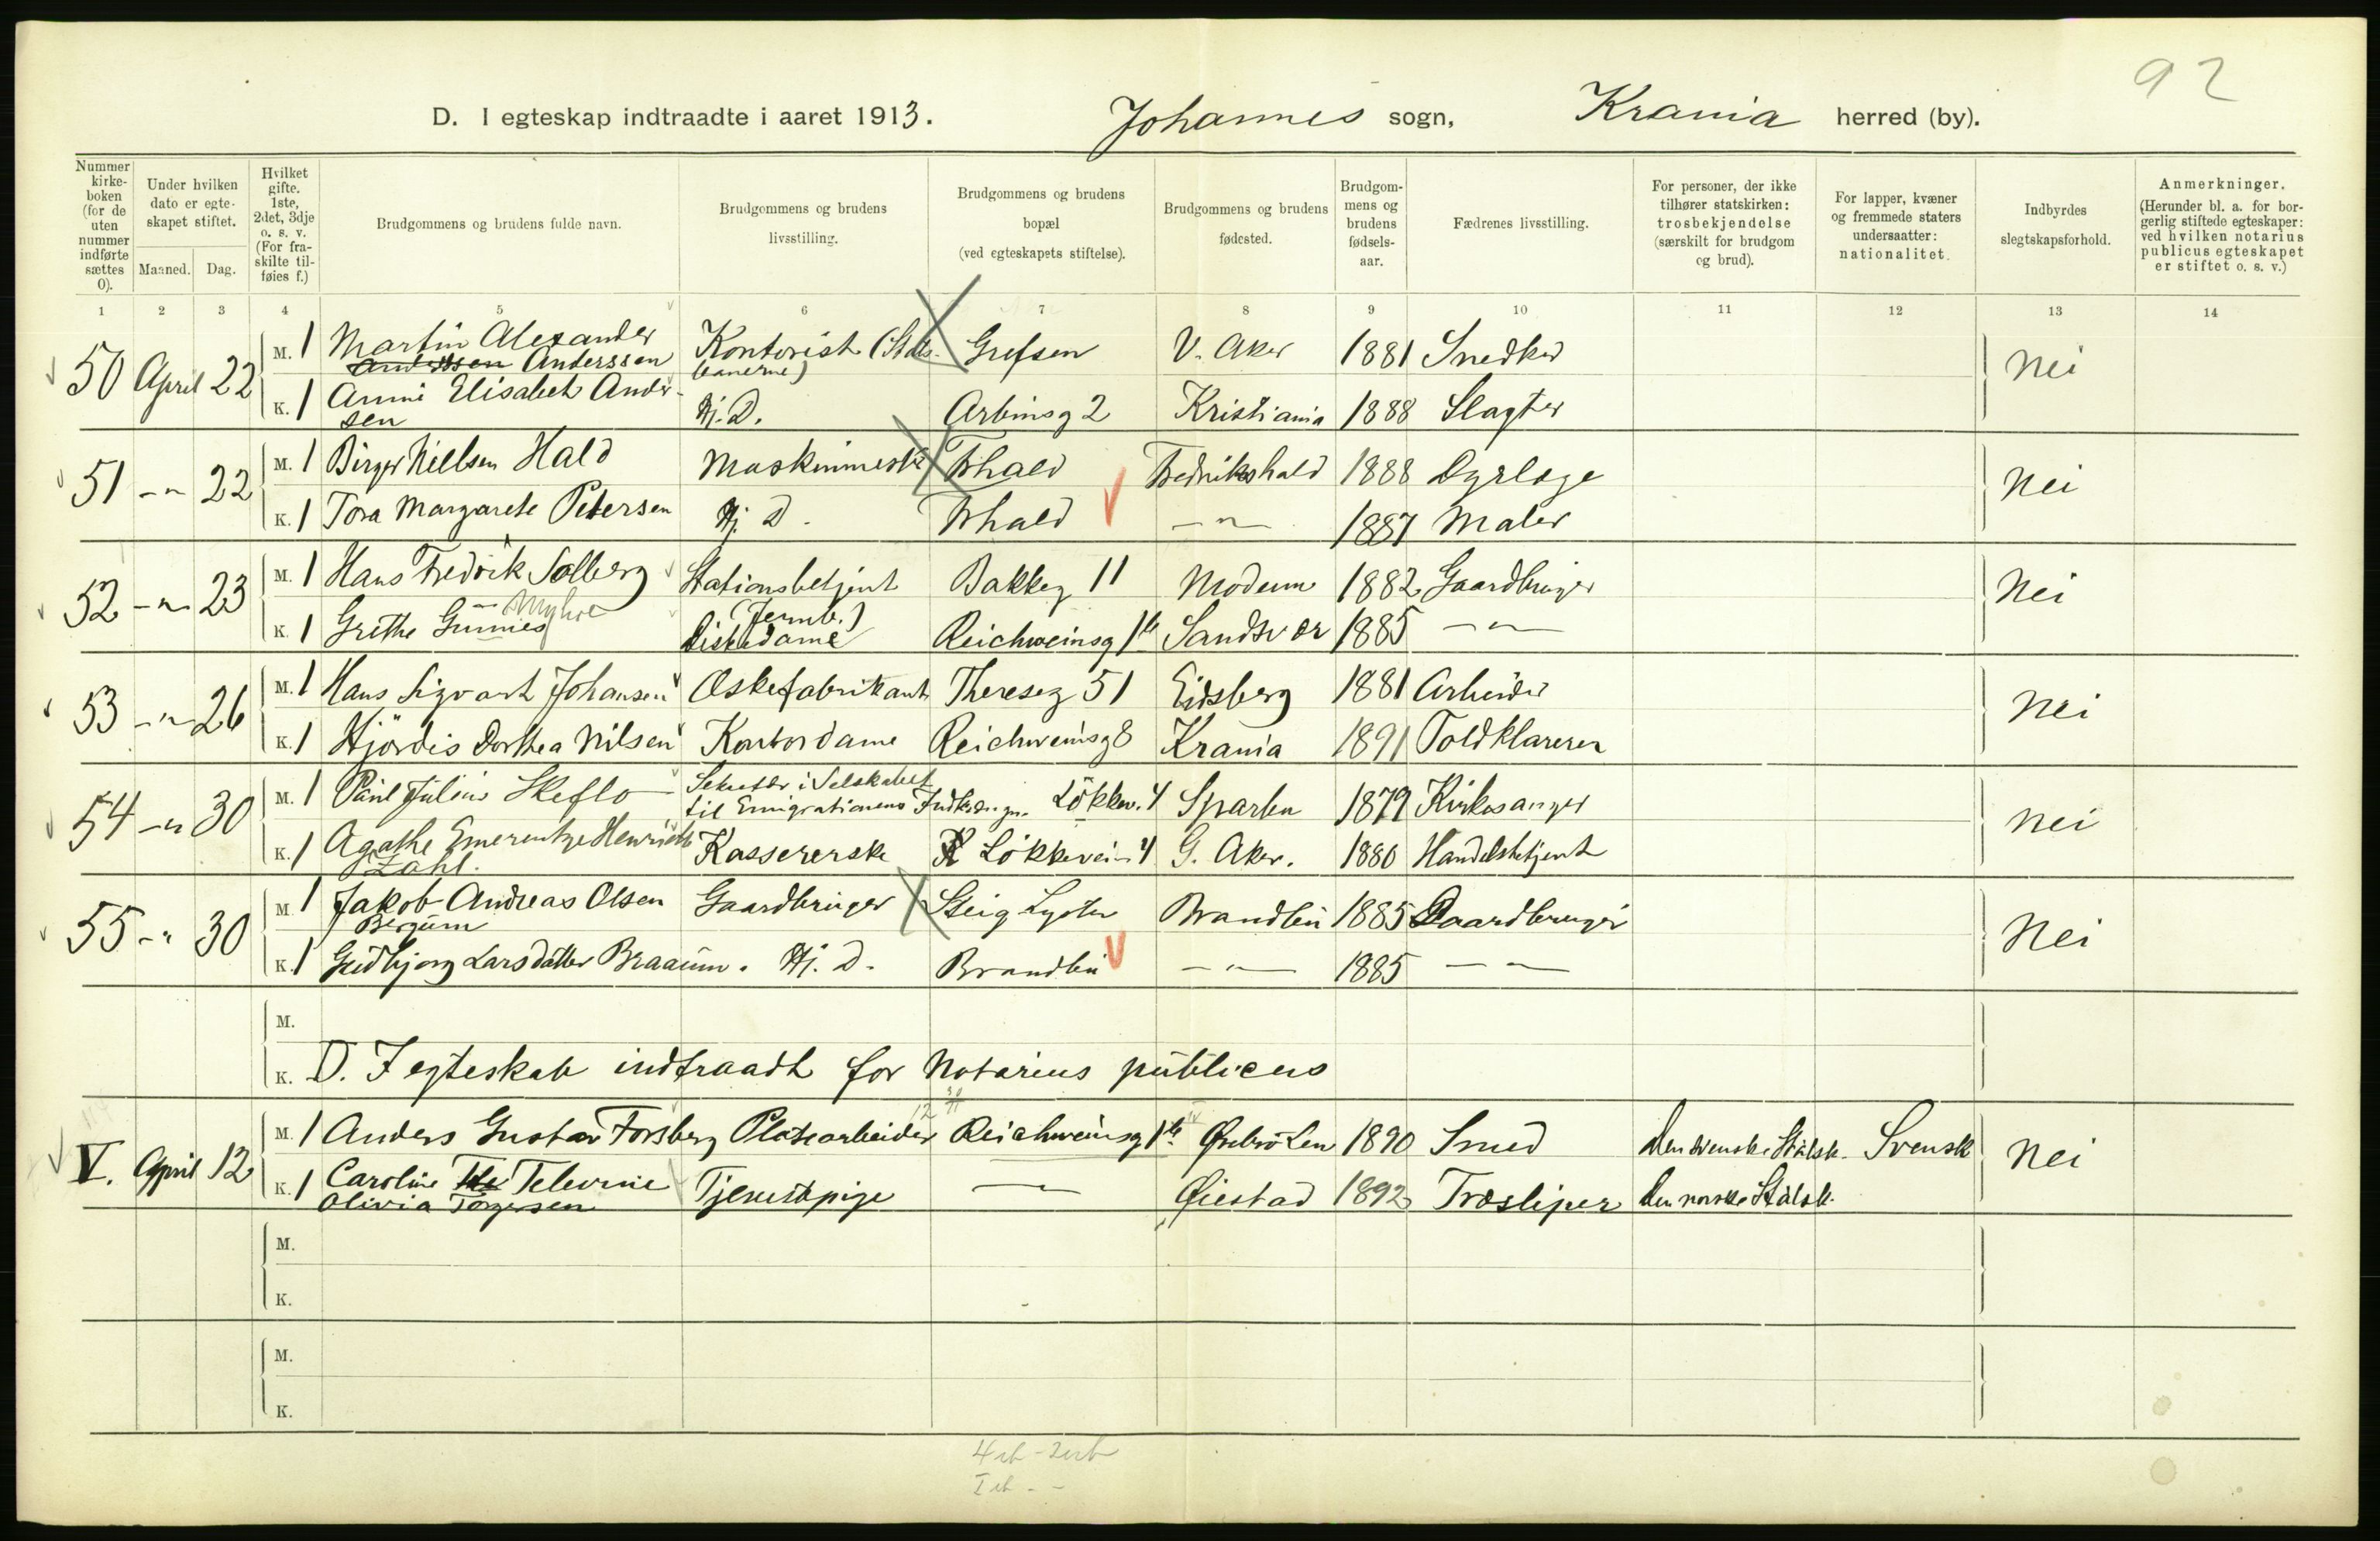 92
D. I egteskap indtraadte i aaret 1913. Johannes sogn, Krania herred (by).
Nummer kirke-boken (for de uten nummer indførte sættes 0).
Under hvilken dato er egte-skapet stiftet.
Maaned. Dag.
Hvilket gifte. 1ste, 2det, 3dje o. s. v. (For fra-skilte til-føies f.)
Brudgommens og brudens fulde navn.
Brudgommens og brudens livsstilling.
Brudgommens og brudens bopæl (ved egteskapets stiftelse).
Brudgommens og brudens fødested.
Brudgom-mens og brudens fødsels-aar.
Fædrenes livsstilling.
For personer, der ikke tilhører statskirken: trosbekjendelse (særskilt for brudgom og brud).
For lapper, kvæner og fremmede staters undersaatter: nationalitet.
Indbyrdes slegtskapsforhold.
Anmerkninger. (Herunder bl. a. for bor-gerlig stiftede egteskaper: ved hvilken notarius publicus egteskapet er stiftet o. s. v.)
1 2 3 4 5 6 7 8 9 10 11 12 13 14
50 April 22 M. 1 Martin Alexander Anderssen Kontorist (Stats-banerne) Grefsen V. Aker 1881 Snedker Nei
K. 1 Anni Elisabet Ander-sen Hj. D. Arbinsg 2 Kristiania 1888 Slagter
51 -"- 22 M. 1 Birger Nielsen Hald Maskinmestr Frhald Fredrikshald 1888 Dyrlæge Nei
K. 1 Tora Margarete Petersen Hj. D. Frhald -"- 1887 Maler
52 -"- 23 M. 1 Hans Fredrik Solberg Stationsbetjent (Jernb.) Bakkeg 11 Modum 1882 Gaardbruger Nei
K. 1 Grethe Gunnes Myhre Diskedame Reichweinsg 1b Sandsvær 1885 -"-
53 -"- 26 M. 1 Hans Sigvart Johansen Æskefabrikant Thereseg 51 Eidsberg 1881 Arbeider Nei
K. 1 Hjördis Dorthea Nilsen Kontordame Reichweinsg 8 Krania 1891 Toldklarerer
54 -"- 30 M. 1 Paul Julius Skeflo Sekretær i Selskabet til Emigrationens Indskr.gn. Lökkev. 4 Sparbu 1879 Kirkesanger Nei
K. 1 Agathe Emerentze Henriette Zahl. Kassererske Lökkevein 4 G. Aker. 1880 Handelsbetjent
55 -"- 30 M. 1 Jakob Andreas Olsen Bergum Gaardbruger Steig Lyster Brandbu 1885 Gaardbruger Nei
K. 1 Gudbjorg Larsdatter Braaum. Hj. D. Brandbu -"- 1885 -"-
M.
K. D. I egteskab indtraadt for Notarius publicus
V. April 12 M. 1 Anders Gustav Forsberg Platearbeider Reichweinsg 1b Ørebro Len 1890 Smed Den svenske Statsk. Svensk Nei
K. 1 Caroline Televine Olivia Torgersen Tjenestepige -"- Øiestad 1892 Træsliper Den norske Statsk.
M.
K.
M.
K.